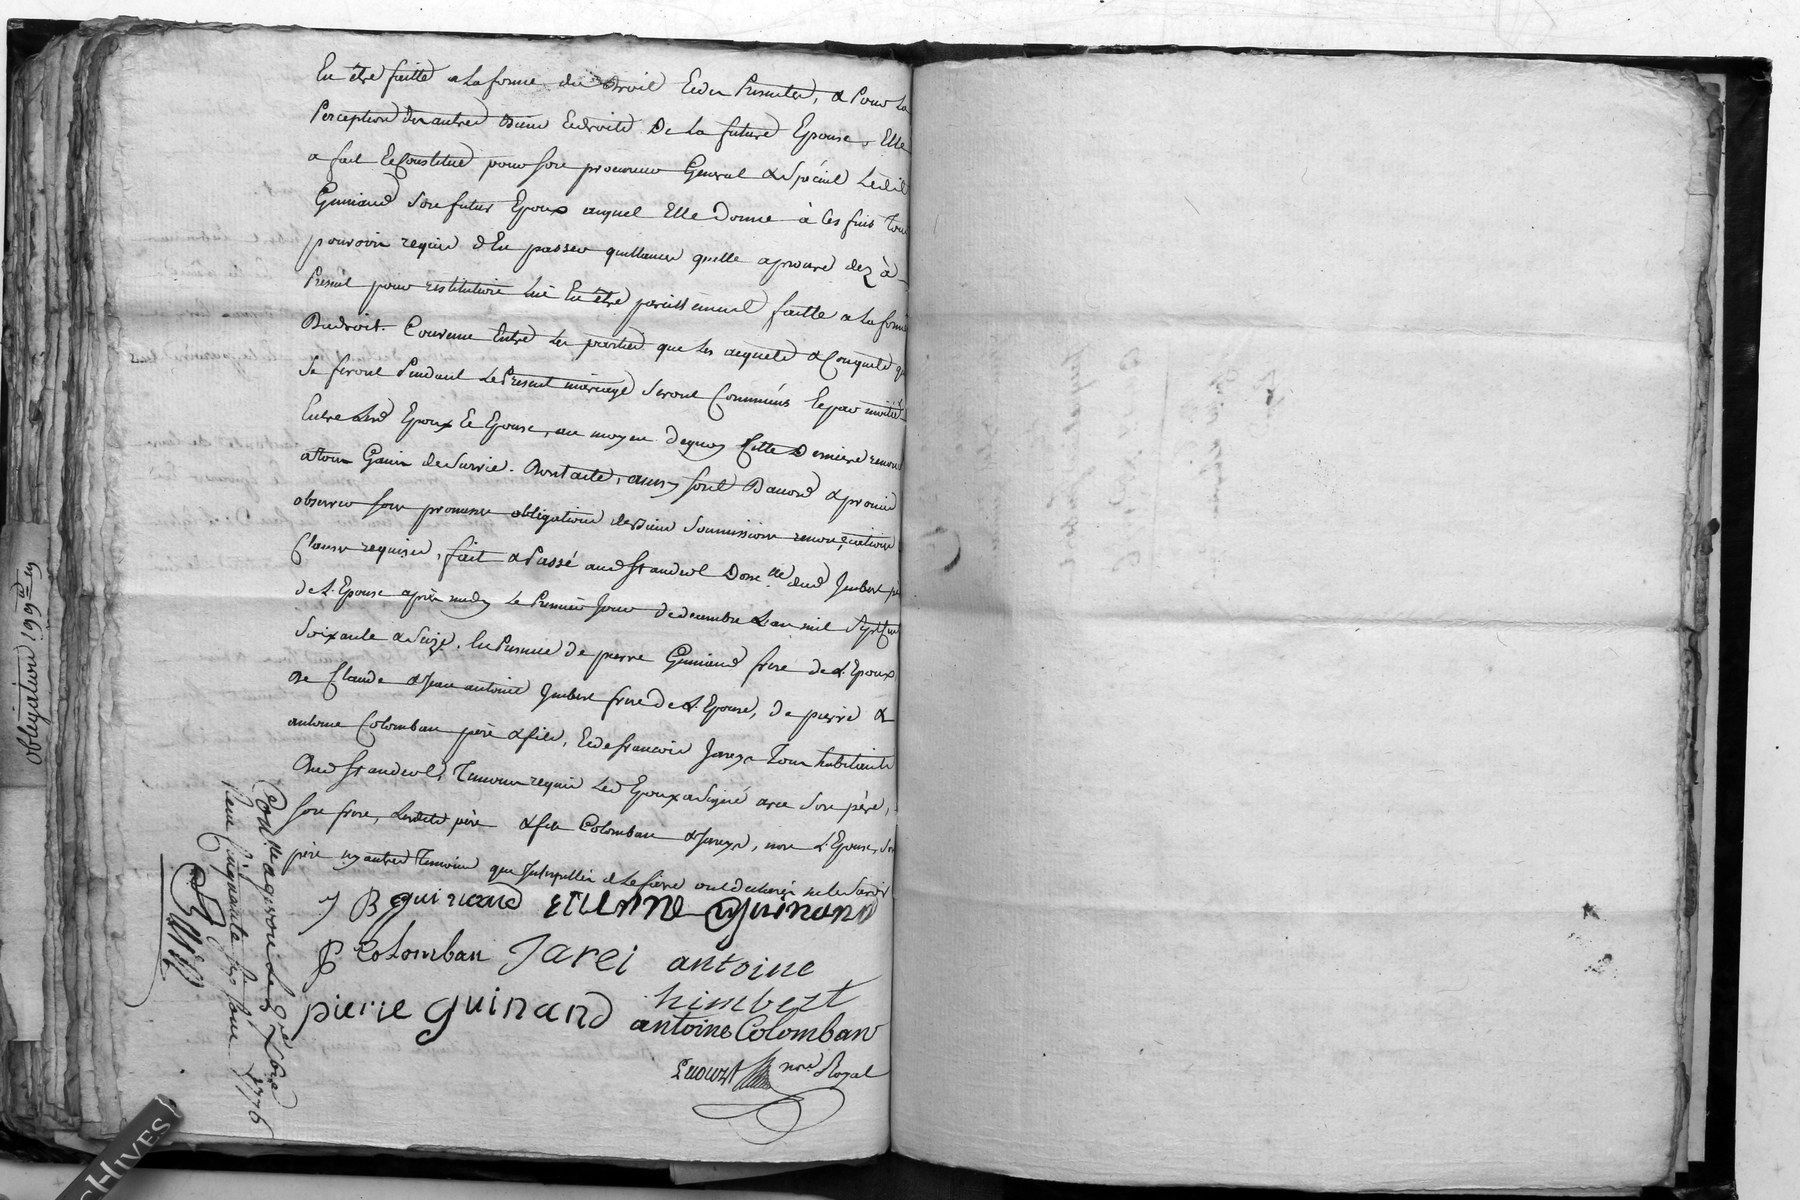 En être faitte a la forme du droit Et des Presentes, & Pour la
Perception des autres Biens Et droits De la future Epouse, Elle
a fait Et Constitué pour son procureur General & Spécial Ledit
Guinand son futur Epoux auquel Elle Donne à Ces fins Tout
pouvoir requis d'En passer quittances quelle aprouve dez à
Present pour restitution lui En être pareillement faitte a la forme
Du droit. Convenu Entre Les parties que les acquets & Conquets q
se feront Pendant Le Present mariage seront Communs Et par moitié
Entre Lesd Epoux Et Epouse, au moyen dequoy Cette Derniere renonce
a tout Gain de Survie. Dont acte, ainsy sont D'accord & promis
observer sous promesses obligations de Biens soumissions renonciations
Clauses requises, fait & Passé aud St andeol Dom.lle dud Jmbert pè
de L'Epouse après midy Le Premier Jour de decembre L'an mil Sept Cent
Soixante & Seize. En Presence de pierre Guinand frere de L'Epoux
De Claude & Jean antoine Jmbert freres de L'Epouse, de pierre &
antoine Colomban père & fils, Et de francois Jarey Tous habitants
Dud St andeol, Temoins requis Led Epoux a Signé avec Son père,
son frere, Lesdits père & fils Colomban & Jarey, non L'Epouse, Son
père ny autres Temoins qui Jnterpellés de Le faire ont declarés ne le Savoir
J B guinand ETIENNE guinand
P Colomban Jarei antoine
himbert
pierre guinand antoine Colomban
nre Royal
Con.lle a givors Le 9e Xbre 1776
Reçu Cinquante
obligation 199
CHIVES